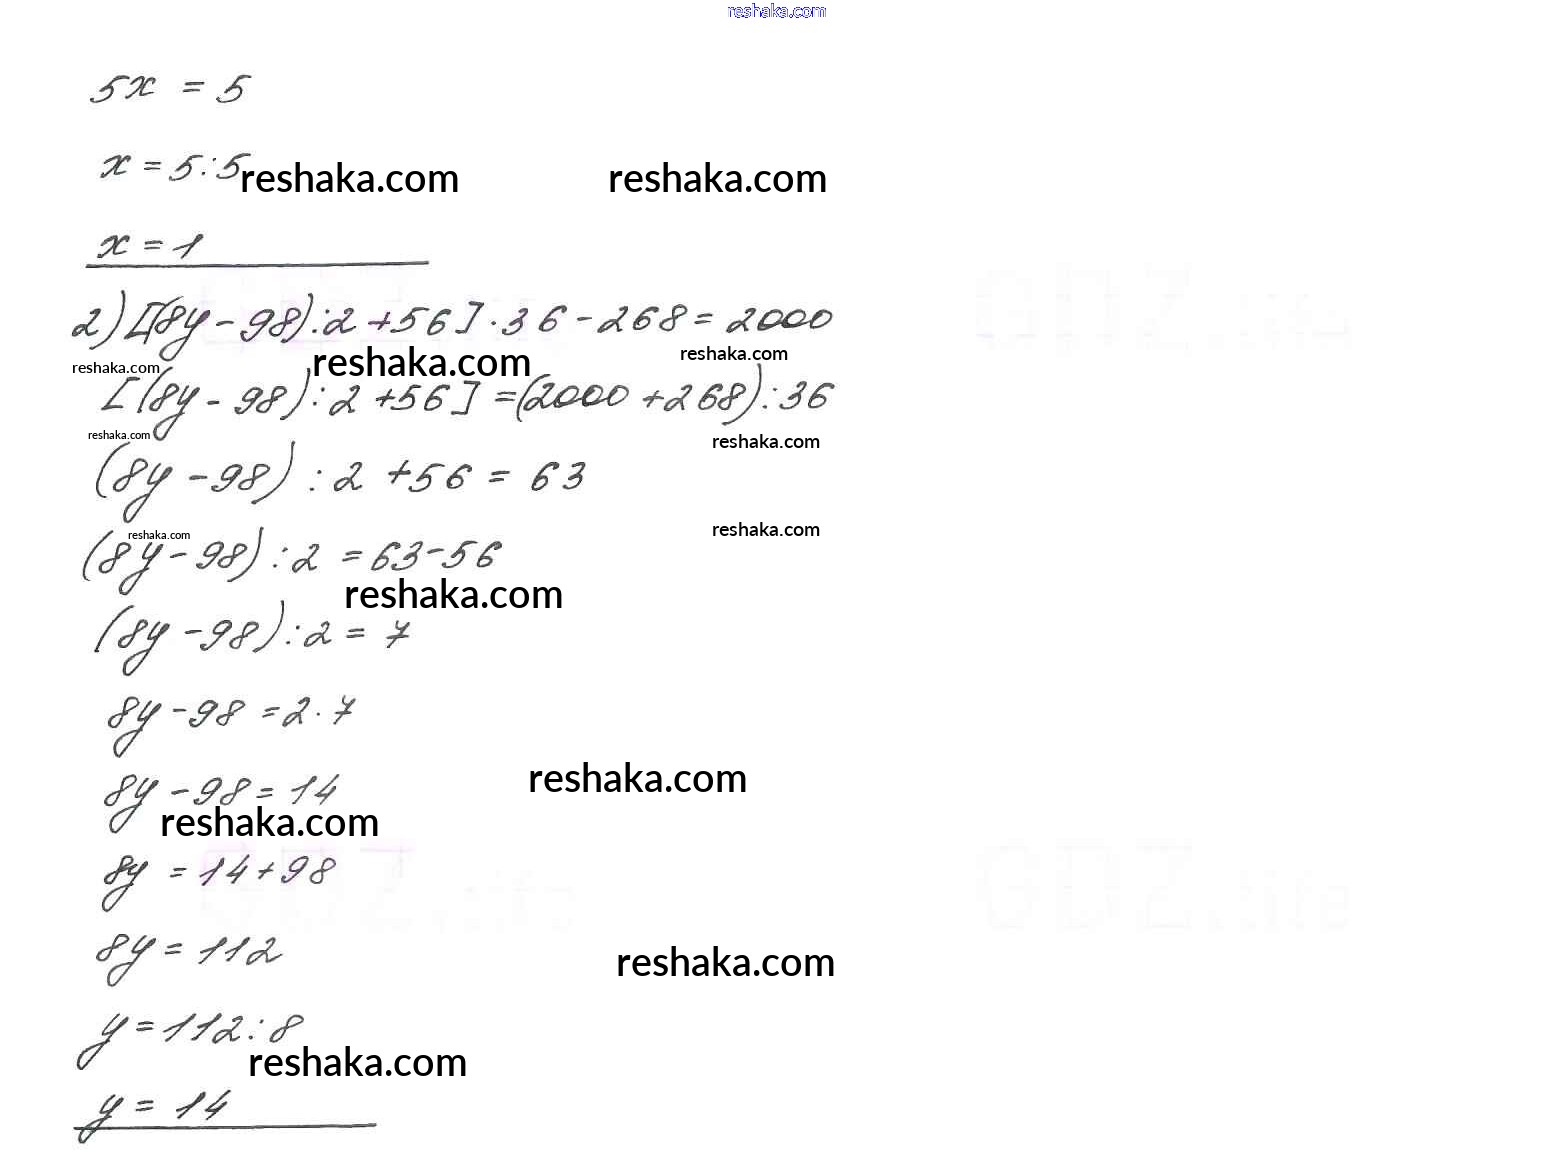 reshaka.com
5x = 5
x = 5:5
reshaka.com reshaka.com
x = 1
2) [(8y - 98):2 + 56] · 36 - 268 = 2000
reshaka.com reshaka.com reshaka.com
[(8y - 98):2 + 56] = (2000 + 268):36
reshaka.com reshaka.com
(8y - 98) : 2 + 56 = 63
reshaka.com reshaka.com
(8y - 98) : 2 = 63 - 56
reshaka.com
(8y - 98) : 2 = 7
8y - 98 = 2 · 7
reshaka.com
8y - 98 = 14
reshaka.com
8y = 14 + 98
8y = 112
reshaka.com
y = 112 : 8
reshaka.com
y = 14